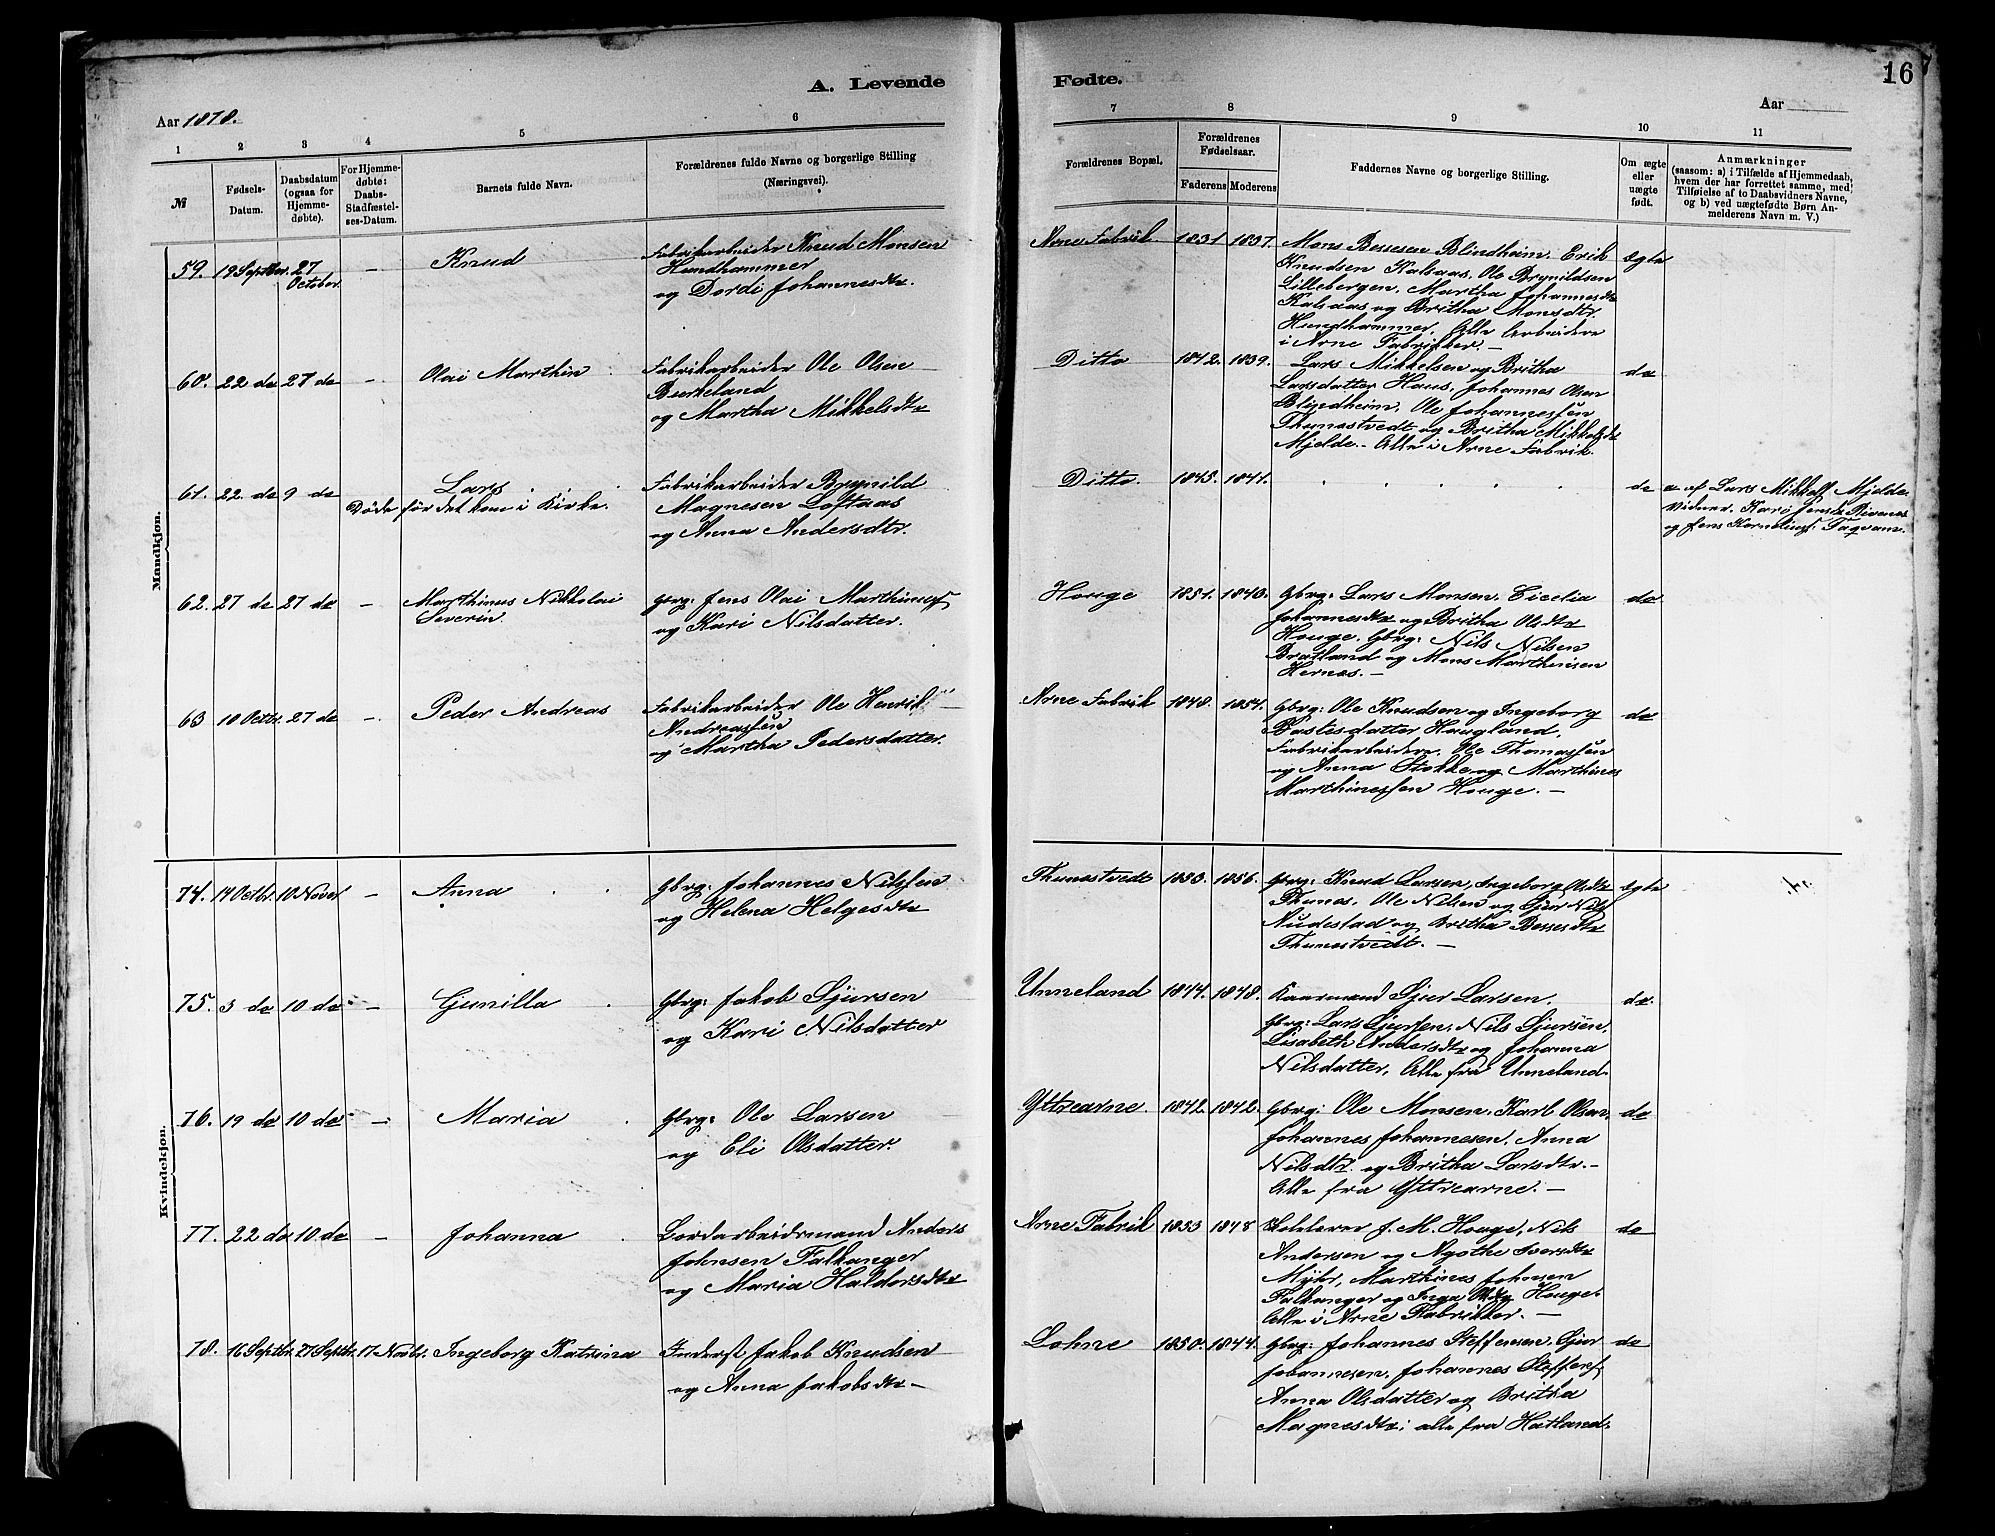 A. Levende
Fødte.
16
Aar 1878.
Aar
1 2 3 4 5 6
7 8 9 10 11
№
Fødsels-
Datum.
Daabsdatum
(ogsaa for
Hjemme-
døbte).
For Hjemme-
døbte:
Daabs-
Stadfæstel-
ses-Datum.
Barnets fulde Navn.
Forældrenes fulde Navne og borgerlige Stilling
(Næringsvei).
Forældrenes Bopæl.
Forældrenes
Fødselsaar.
Faderens Moderens
Faddernes Navne og borgerlige Stilling.
Om ægte
eller
uægte
født.
Anmærkninger
(saasom: a) i Tilfælde af Hjemmedaab,
hvem der har forrettet samme, med
Tilføielse af to Daabsvidners Navne,
og b) ved uægtefødte Børn An-
melderens Navn m. V.)
Mandkjøn.
59. 19 Septbr. 27
October.
—
Knud
Fabrikarbeider Knud Monsen
Hundhammer
og Dordi Johannesdtr.
Arne Fabrik 1831 1837.
Mons Bessesen Blindheim. Erik
Knudsen Kalsaas, Ole Brynildsen
Lillebergen. Martha Johannesdtr
Kalsaas og Britha Monsdtr.
Hundhammer. Alle Arbeidere
i Arne Fabrikker. —
Egte
60. 22 do 27 do —
Olai Marthin
Fabrikarbeider Ole Olsen
Birkeland
og Martha Mikkelsdtr
Ditto 1842. 1839.
Lars Mikkelsen og Britha
Larsdatter Haus, Johannes Olsen
Blindheim, Ole Johannessen
Thunestvedt og Britha Mikkelsdtr
Mjelde. – Alle i Arne Fabrik.
do
61. 22 do 9 do
Lars
Døde før det kom i Kirke.
Fabrikarbeider Brynild
Magnesen Loftaas
og Anna Andersdtr.
Ditto. 1845. 1841.
do
a af Lars Mikkels. Mjelde
Vidner. Kari Jensdtr Rivenes
og Jens Kornelius. Taqvam.
62. 27 do 27 do —
Marthinus Nikkolai
Severin.
Gbrg: Jens Olai Marthinus
og Kari Nilsdatter.
Houge 1851. 1840.
Gbrg: Lars Monsen. Cicelia
Johannesdtr og Britha Olsdtr
Houge. Gbrg: Nils Nilsen
Bratland og Mons Marthinsen
Hernes. —
do
63 10 Octbr. 27 do —
Peder Andreas
Fabrikarbeider Ole Henrik
Andreassen
og Martha Pedersdatter.
Arne Fabrik 1848. 1854.
Gbrg: Ole Knudsen og Ingeborg
Bastesdatter Haugland,
Fabrikarbeidere. Ole Thomassen
og Anna Stokke og Marthines
Marthinessen Houge. —
do
Kvindekjøn.
74. 14 Octbr. 10 Novbr —
Anna
Gbrg: Johannes Nilssen
og Helena Helgesdtr
Thunestvedt 1853. 1856.
Gbrg: Knud Larsen, Ingeborg Olsdtr
Thunes, Ole Nilsen og Sjur Nils
Nudestad og Britha Bessesdtr
Thunestvedt. —
Egte
75. 3 do 10 do —
Gunilla
Gbrg: Jakob Sjursen
og Kari Nilsdatter
Unneland 1844. 1848.
Kaarmand Sjur Larsen.
Gbrg: Lars Sjursen, Nils Sjursen,
Lisabeth Andersdtr og Johanna
Nilsdatter. Alle fra Unneland.
do
76. 19 do 10 do —
Maria
Gbrg: Ole Larsen
og Eli Olsdatter.
Yttrearne. 1842. 1842.
Gbrg: Ole Monsen. Karl Olsen,
Johannes Johannesen, Anna
Nilsdtr. og Britha Larsdtr. –
Alle fra Yttrearne. —
do
77. 22 do 10 do —
Johanna
Jordarbeidsmand Anders
Johnsen Falkanger
og Maria Haldorsdtr
Arne Fabrik 1853 1848
Skolelærer J. M. Houge, Nils
Andersen og Agothe Iversdtr
Myhr, Marthines Johnsen
Falkanger og Inga Olsdtr Houge.
Alle i Arne Fabrikker. —
do
78. 16 Septbr. 27 Septbr. 17 Novbr.
Ingeborg Katrina
Inderst Jakob Knudsen
og Anna Jakobsdtr —
Lohne 1850. 1844.
Gbrg: Johannes Steffensen. Sjur
Johannesen, Johannes Steffens,
Anna Olsdatter og Britha
Magnesdtr; alle fra Hatland.
do